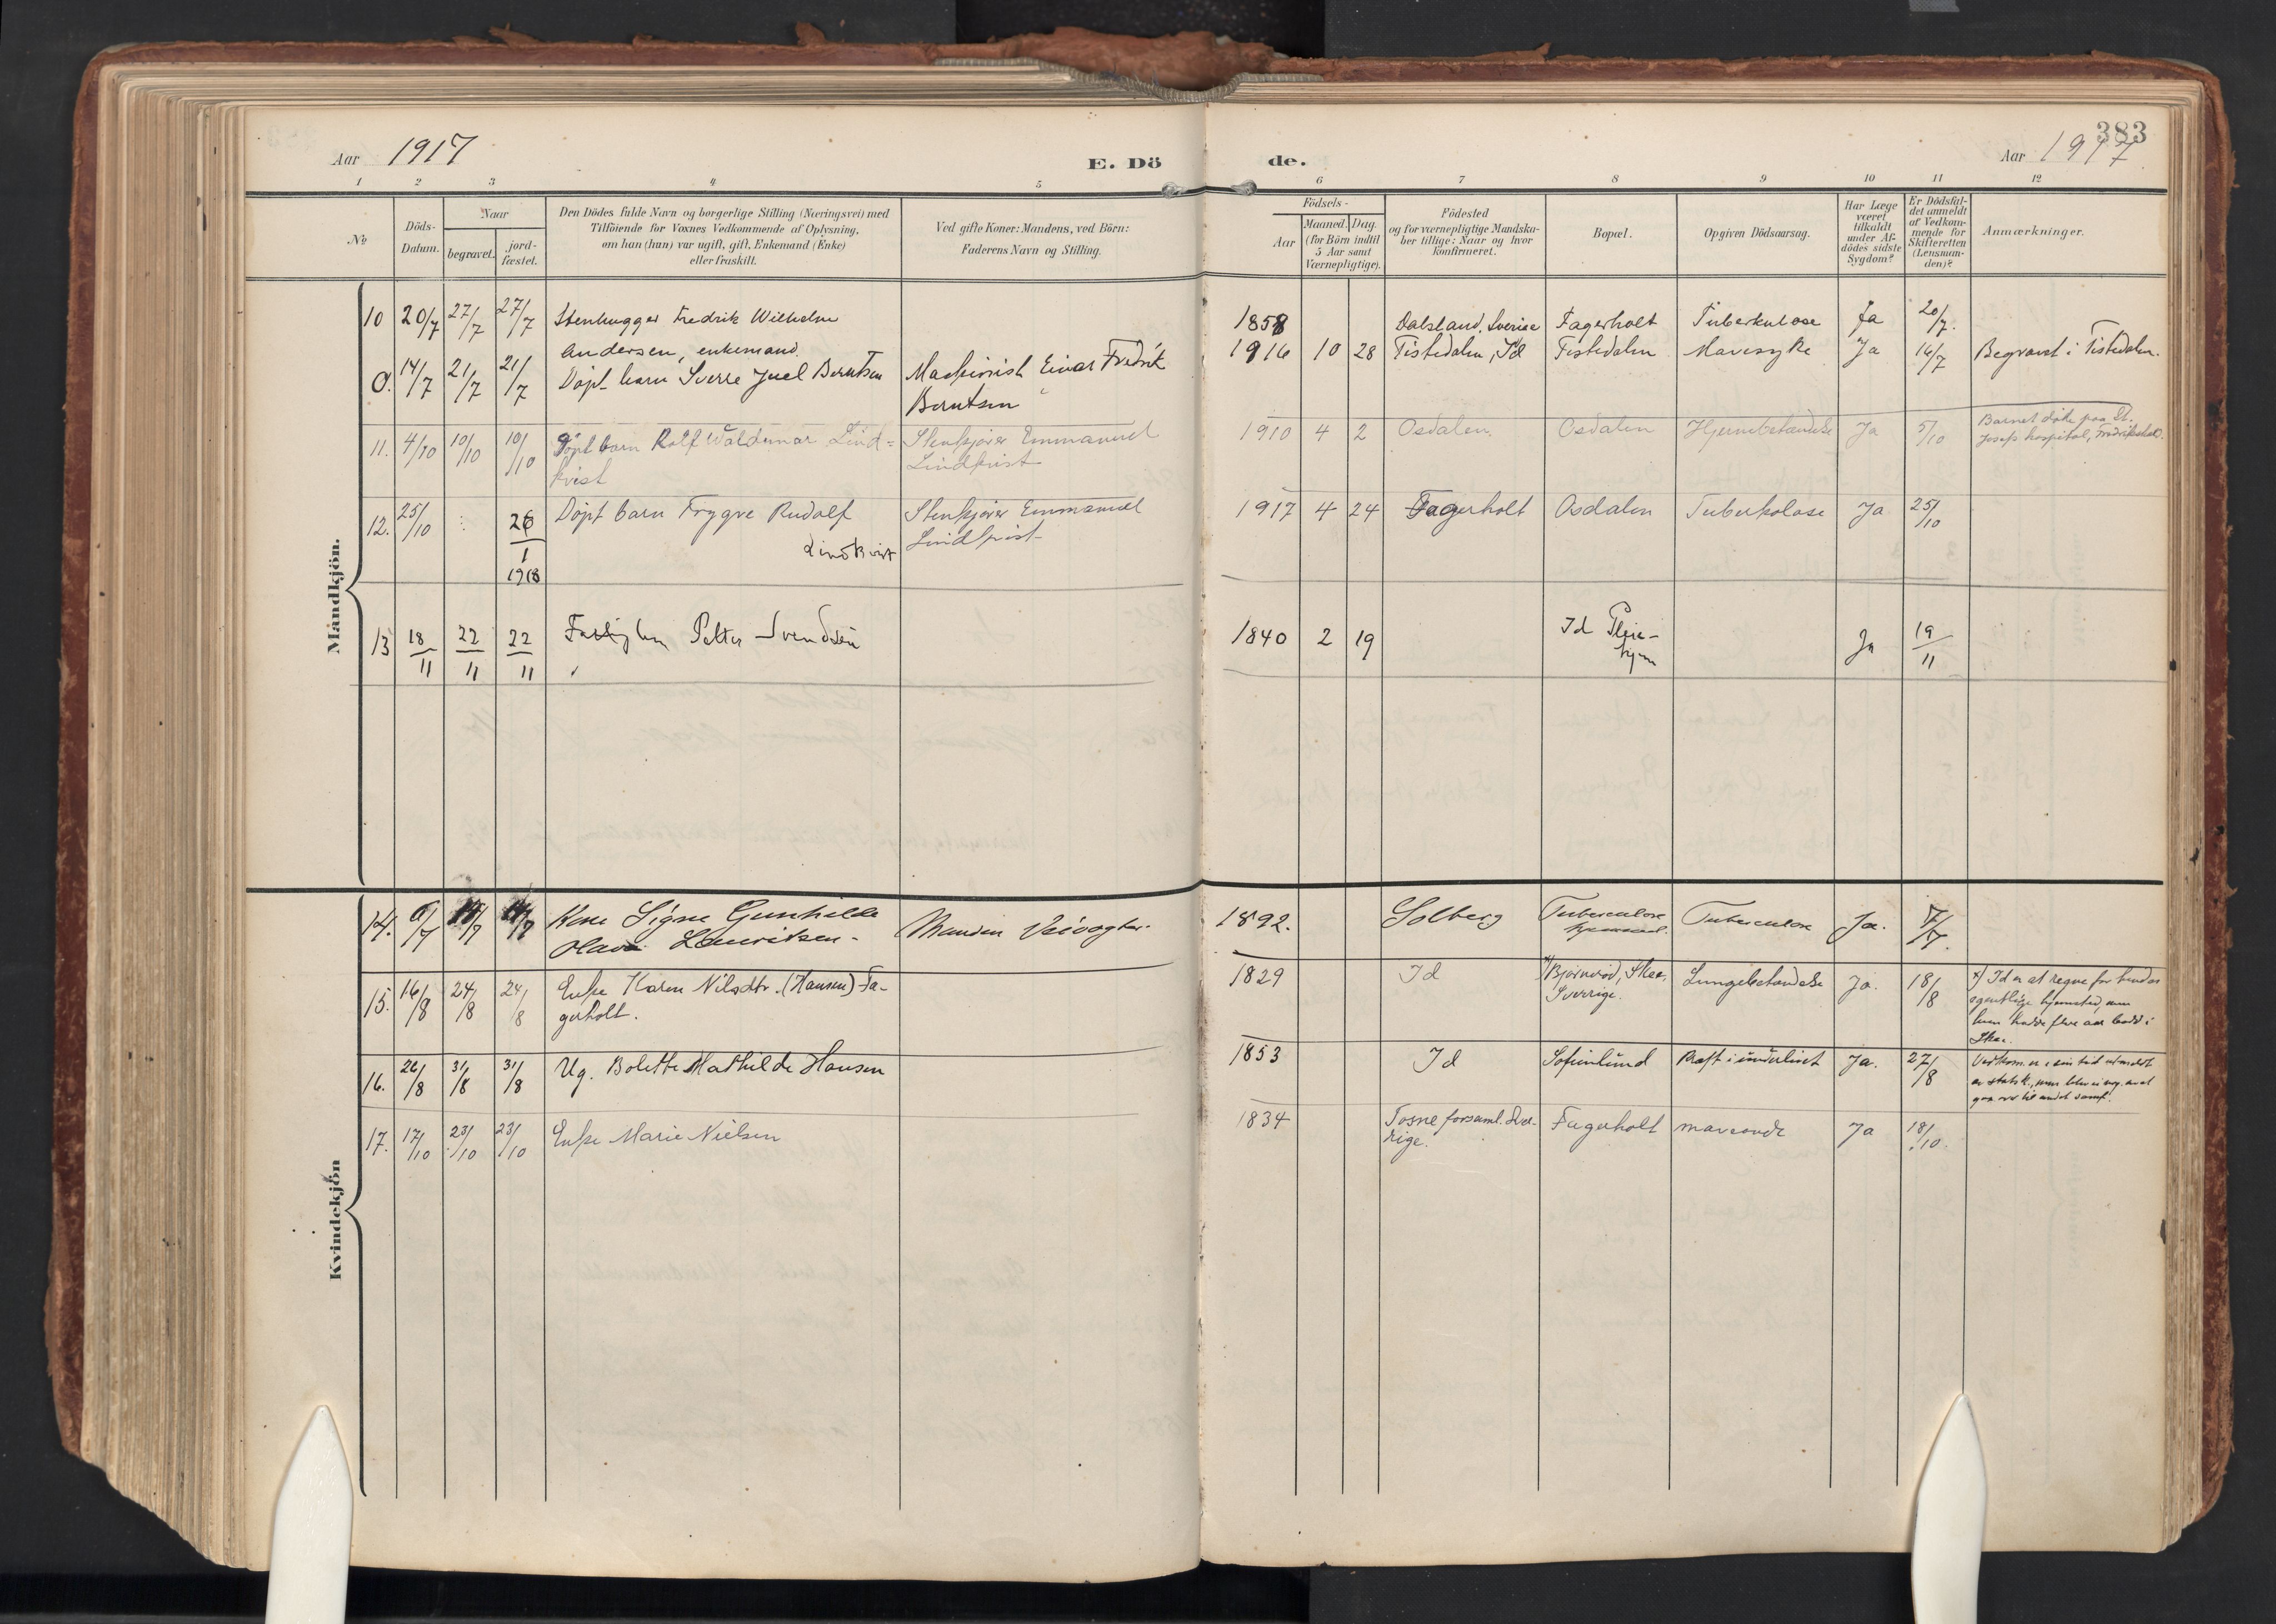 Aar 1917
E. Dö
de.
383
Aar 1917
1 2 3 4 5 6 7 8 9 10 11 12
No
Döds-
Datum.
Naar
begravet.
jord-
fæstet.
Den Dödes fulde Navn og borgerlige Stilling (Næringsvei) med
Tilföiende for Voxnes Vedkommende af Oplysning,
om han (hun) var ugift, gift, Enkemand (Enke)
eller fraskilt.
Ved gifte Koner: Mandens, ved Börn:
Faderens Navn og Stilling.
Födsels-
Aar
Maaned. Dag.
(for Börn indtil
5 Aar samt
Værnepligtige).
Födested
og for værnepligtige Mandska-
ber tillige: Naar og hvor
konfirmeret.
Bopæl.
Opgiven Dödsaarsag.
Har Læge
været
tilkaldt
under Af-
dödes sidste
Sygdom?
Er Dödsfal-
det anmeldt
af Vedkom-
mende for
Skifteretten
(Lensman-
den)?
Anmærkninger.
Mandkjön.
10 20/7 27/7 27/7 Stenhugger Fredrik Wilhelm
Andersen, enkemand.
1858 Dalsland, Sverige Fagerholt Tuberkulose Ja 20/7.
0. 14/7 21/7 21/7 Döpt barn Sverre Juel Berntsen Maskinist Einar Fredrik
Berntsen
1916 10 28 Tistedalen, Id Tistedalen Mavesyke Ja 16/7 Begravet i Tistedalen.
11. 4/10 10/10 10/10 Döpt barn Rolf Waldemar Lind=
kvist
Stenkjører Emmanuel
Lindkvist
1910 4 2 Osdalen. Osdalen Hjernebetændelse Ja 5/10 Barnet døde paa St.
Josefs hospital, Fredrikshald.
12. 25/10 26/1 1918 Döpt barn Trygve Rudolf
Lindkvist
Stenkjører Emmanuel
Lindkvist
1917 4 24 Fagerholt Osdalen Tuberkolose Ja 25/10
13 18/11 22/11 22/11 Petter Svendsen
1840 2 19 Id Pleie-
hjem
Ja 19/11
Kvindekjön
14. 6/7 14/7 Kone Signe Gunhilde
Olava Lauritsen-
Manden Veivogter.
1892. Solberg Tuberculose
hjemmet.
Tuberculose Ja. 7/7.
15. 16/8 24/8 24/8 Enke Karen Nilsdtr. (Hansen) Fa-
gerholt.
1829 Id x) Bjørnerød, Skee,
Sverrige.
Lungebetændelse Ja. 18/8 x) Id er at regne for hendes
egentlige hjemsted, men
hun hadde flere aar bodd i
Skee.
16. 26/8 31/8 31/8 Ug. Bolette Mathilde Hansen
1853 Id Sofienlund Kræft i underlivet Ja. 27/8 Vedkom. er i sin tid utmeldt
av statsk., men blev ei
gaa over til andet samf.
17. 17/10 23/10 23/10 Enke Marie Nielsen
1834 Tosne forsaml. Sver-
rige.
Fagerholt maveonde Ja 18/10.